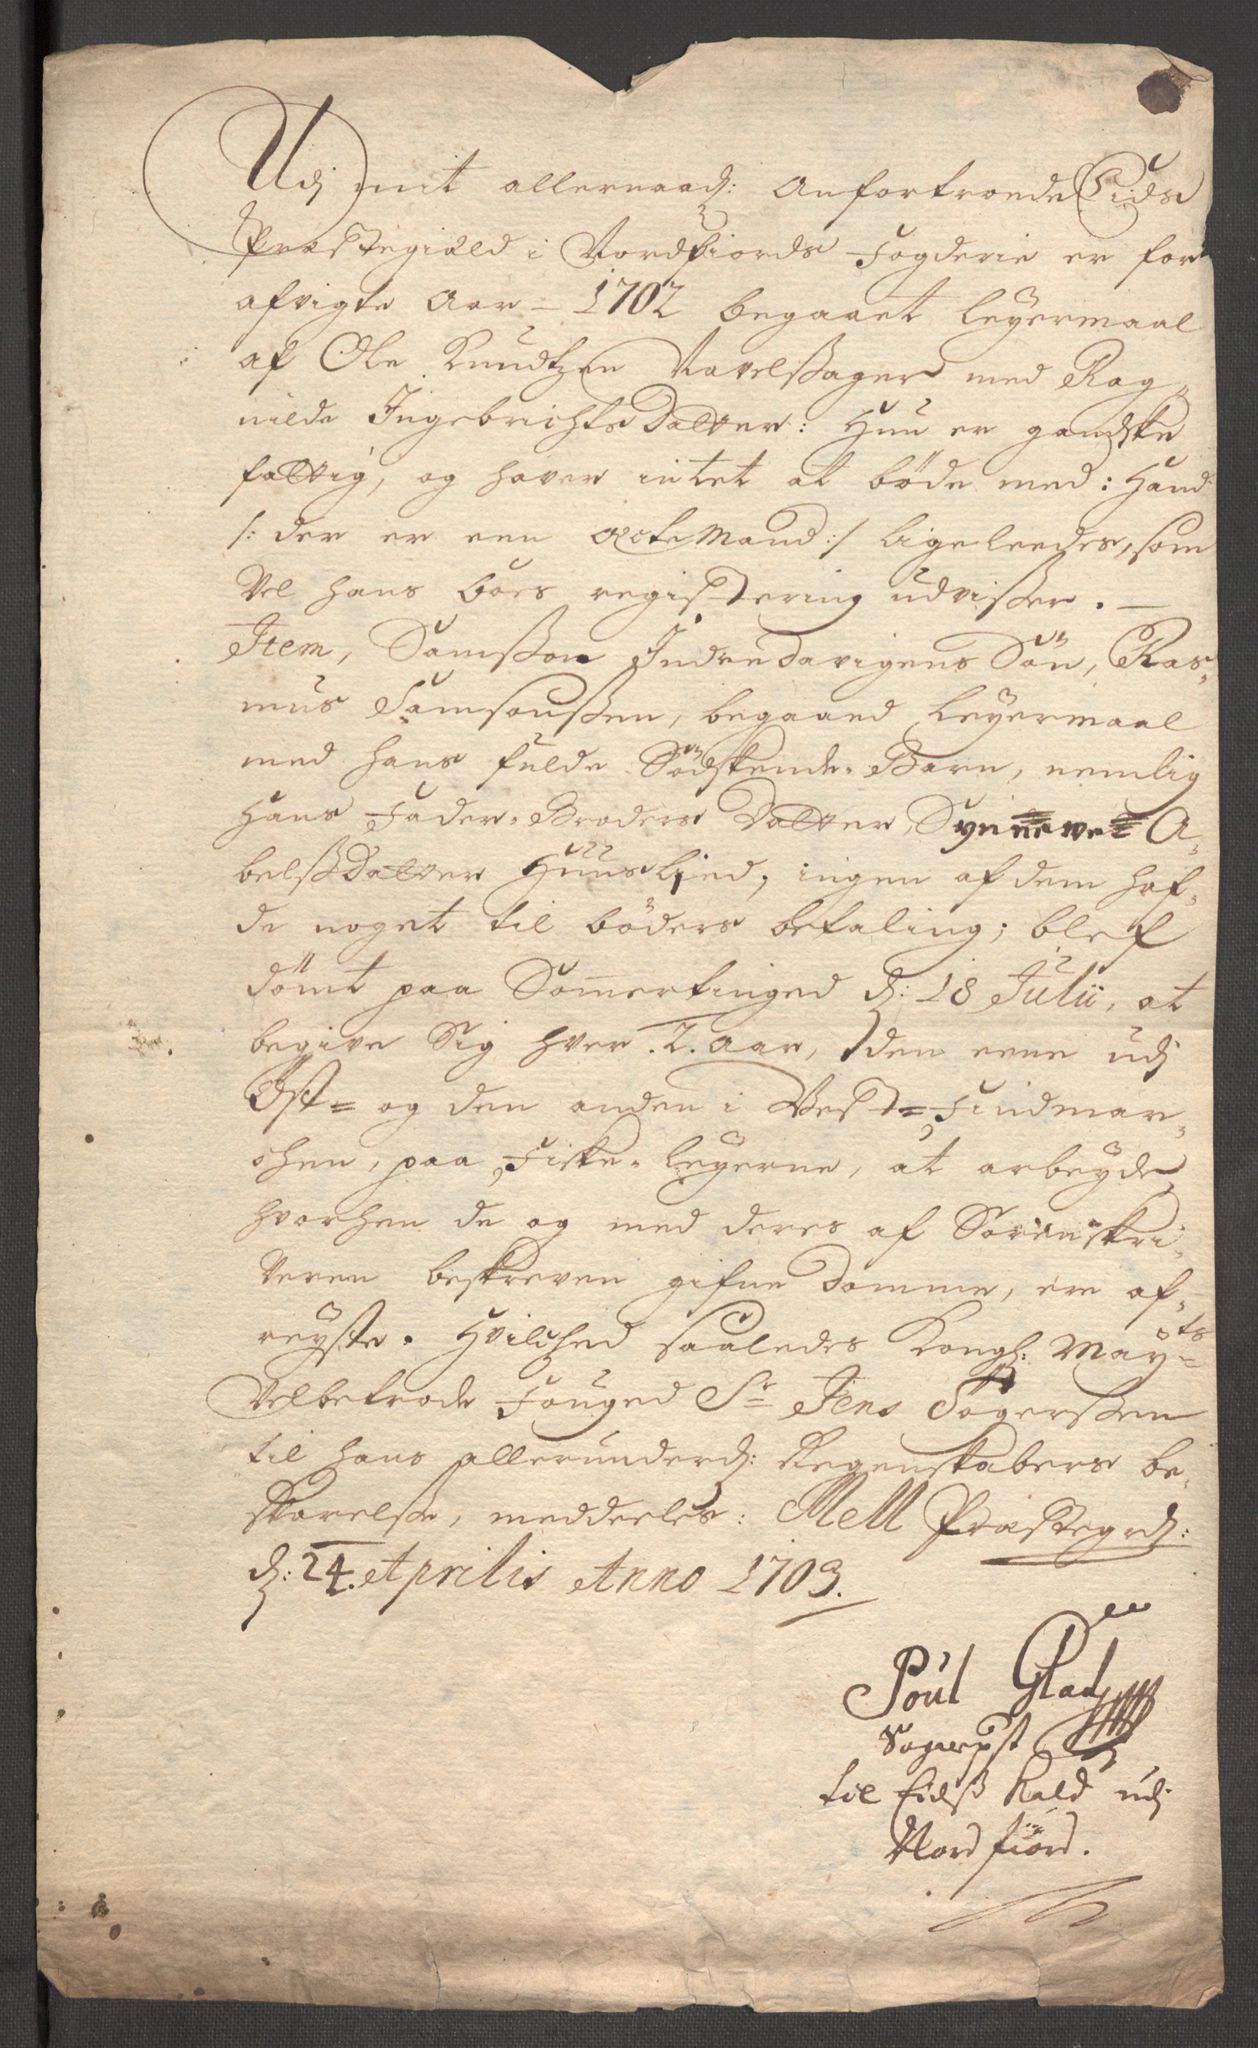 Udj mit allernaadj: Anfortroende Eids
Præstegield i Nordfiords Fogderie er for
afvigte Aar - 1702 begaaet Leyermaal
af Ole Knudtzen Navelsager med Rag-
nilde Ingebrichts Datter: Hun er gandske
fattig, og haver intet at böde med: Hand
/: der er een Ecte Mand :/ ligeleedes, som
Vel hans boes registering udvisser. -
Item, Samsson Indre davigens Sön, Ras-
mus Samsonssen, begaaed Leyermaal
med hans fulde Södskende-Barn, nemlig
Hans Fader-Broders Datter, Synnevet A-
belssDatter Huuslied, ingen af dem haf-
de noget til böders betaling; blef
dömt paa Sommertinged d: 18 Julii, at
begive Sig hver .2. aar, den eene udj
Öst= og den anden i Vest=Findmar-
chen, paa Fiske-leyerne, at arbeyde,
hvorhen de og med deres af Sorenskri-
veren beskreven gifne Domme, ere af-
reyste. Hvilched saaledes Kongl: Mayts
Velbetrode Fouged Sr Jens Sogerssen
til hans allerunderdj: Regenskabers be-
skarelsse, meddeeles: Mell Præstegrdj:
d: 24. Aprilis Anno 1703.
Poul Glad
Sognepst
til Eidss kald udj
Nordfiord.